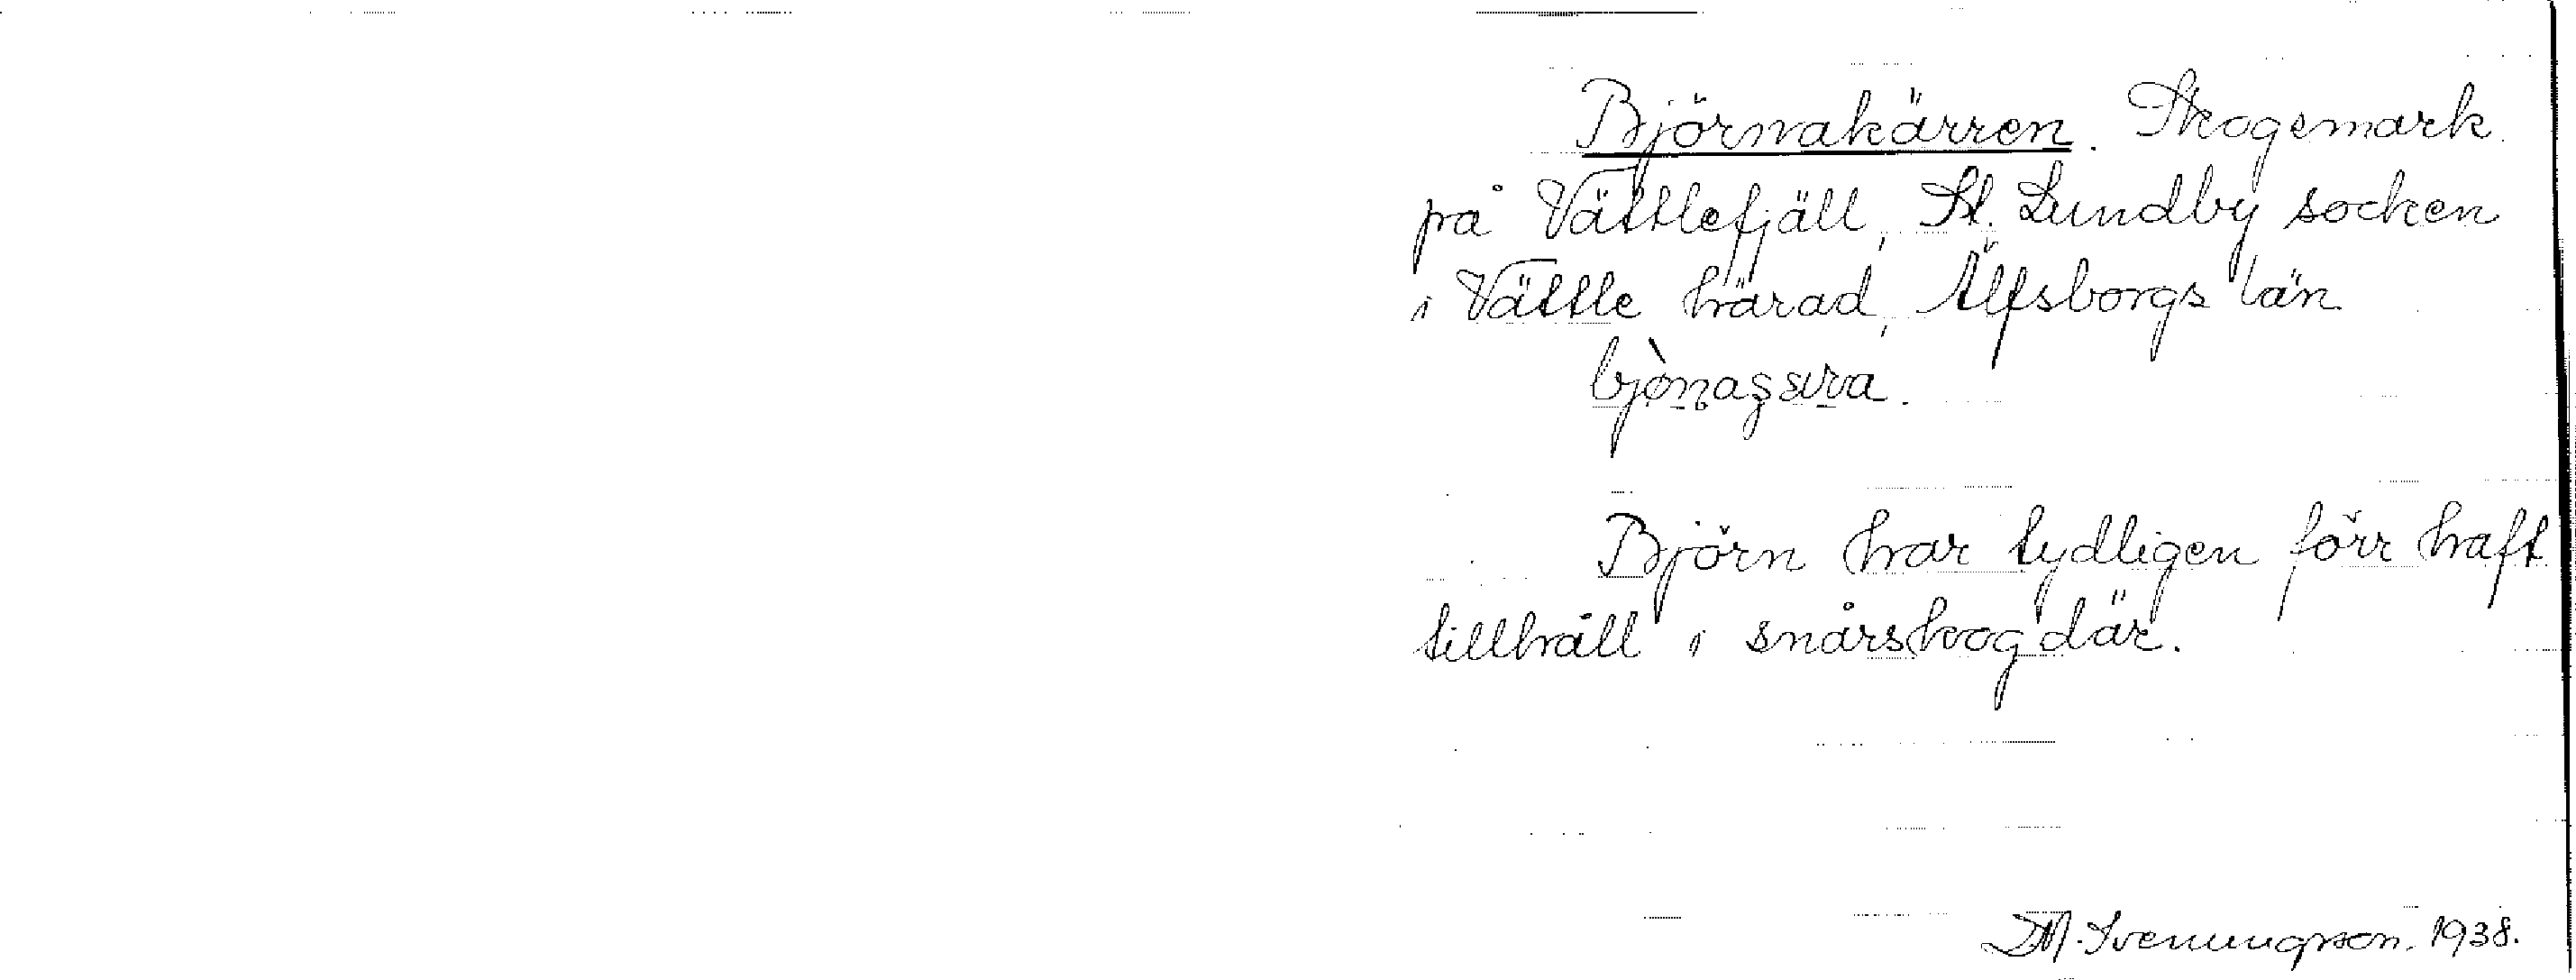 Björnakärren. Skogsmark
på Vättlefjäll, St. Lundby socken
i Vättle härad, Älfsborgs län
Björn har tydligen förr haft
tillhåll i snårskog där.
M. Svenungsson. 1938.